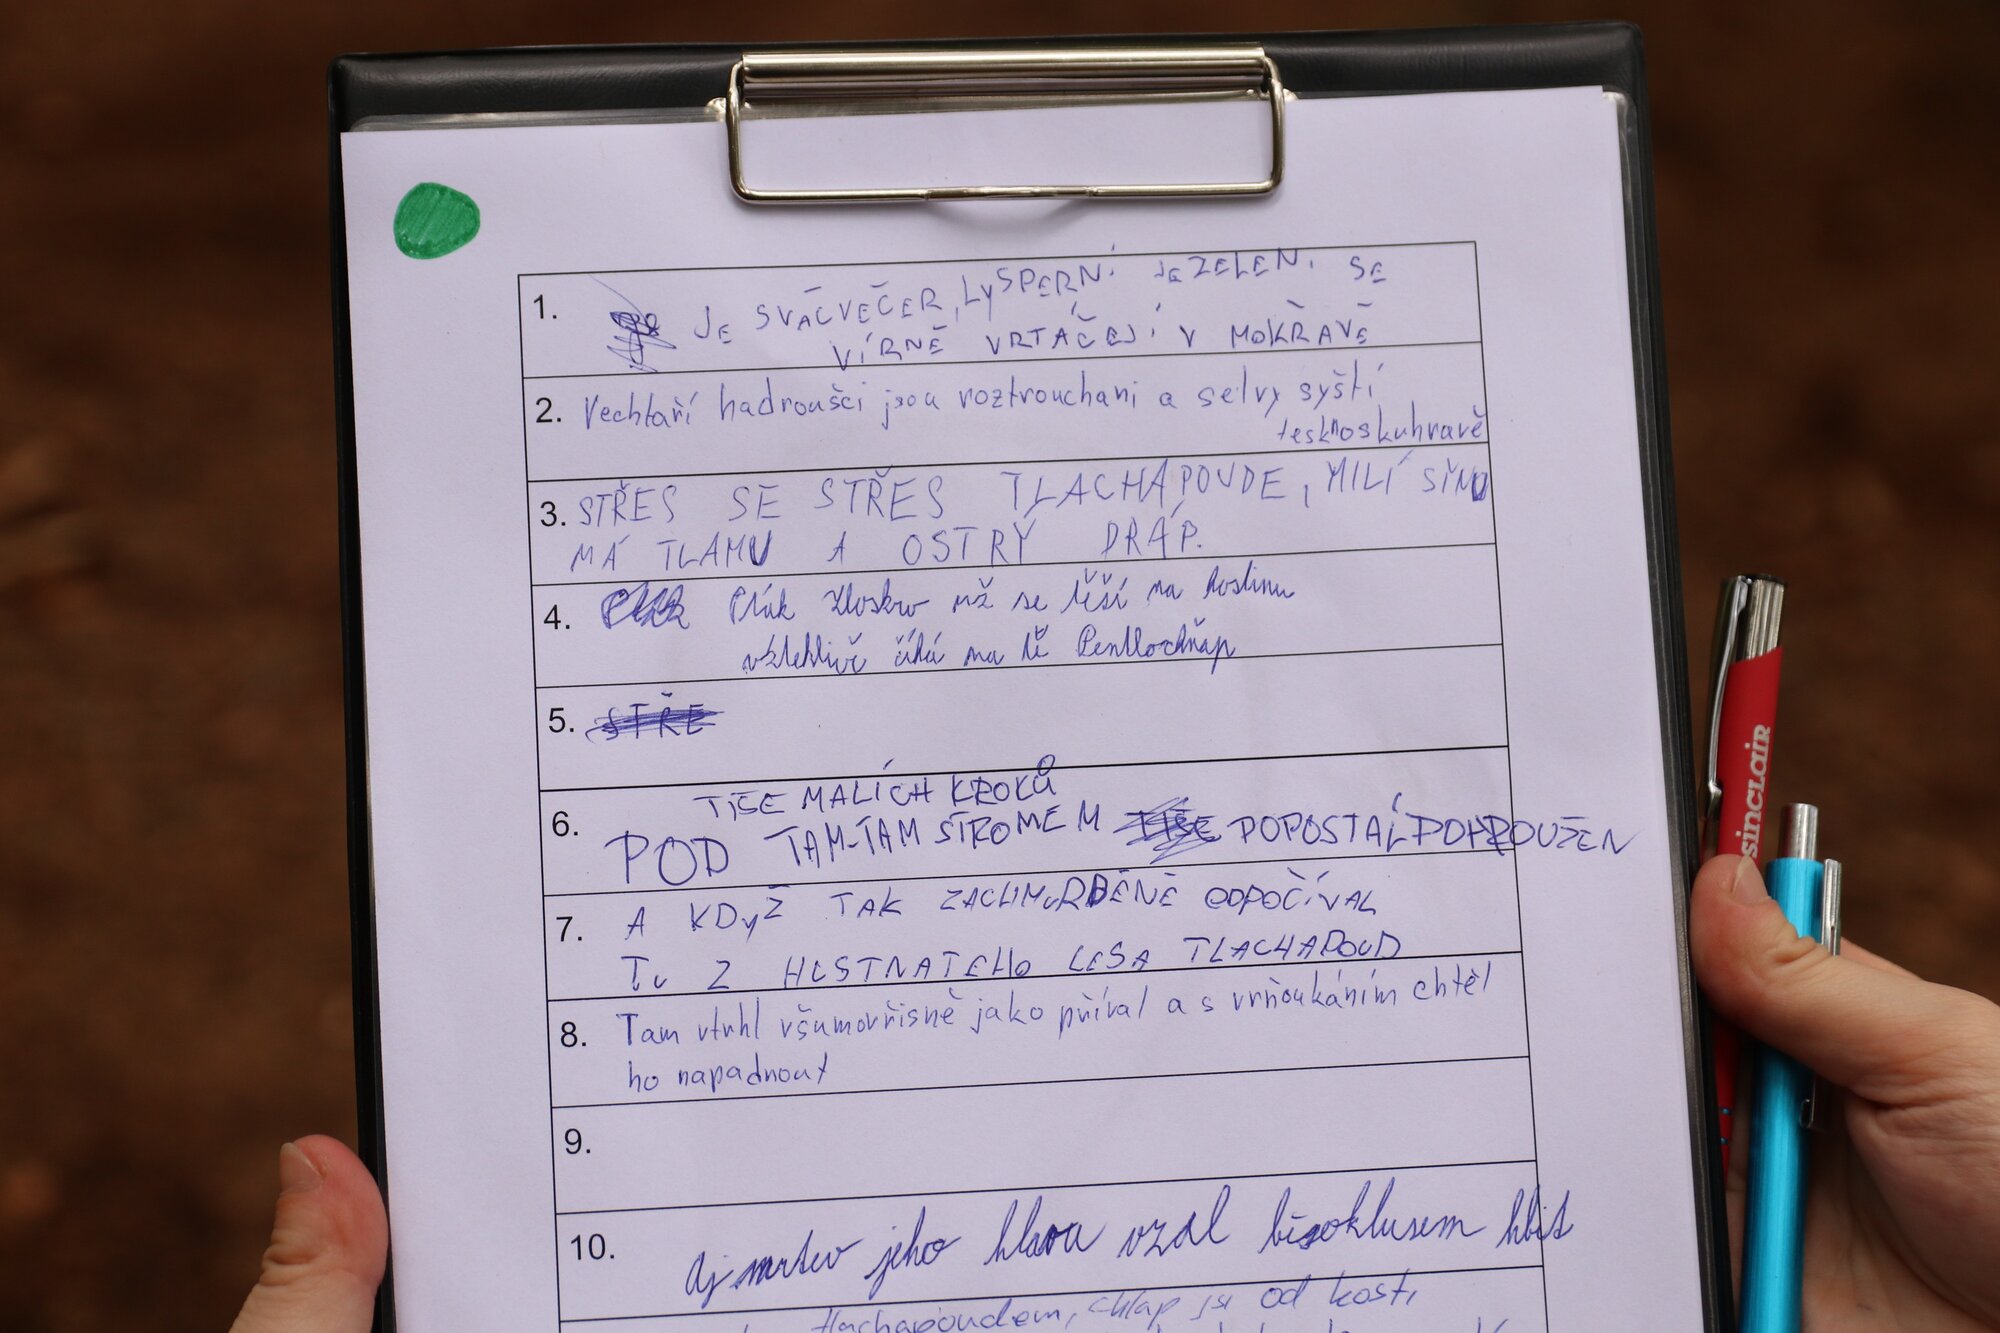 1. JE SVAČVEČER, LYSPERNÍ JEZELENI SE
VÍRNĚ VRTÁČEJÍ V MOKŘAVĚ
2. Vechtaří hadroušci jsou roztrouchani a selvy syští
tesknoskuhravě
3. STŘES SE STŘES TLACHAPOUDE, MILÍ SÍNU
MÁ TLAMU A OSTRÝ DRÁP.
4. Pták Zloskrv už se těší na hostinu
vztehlivě číhá na tě Pentlochňap
5. STŘE
6. TIŠE MALÍCH KROKŮ
POD TAM-TAM STROMEM POPOSTÁL POHROUŽEN
7. A KDYŽ TAK ZACHMURDĚNĚ ODPOČÍVAL
TU Z HUSTNATEHO LESA TLACHAPOUD
8. Tam vtrhl všumovřisně jako příval a s vrňoukáním chtěl
ho napadnout
9.
10. aj mrtev jeho hlava vzal
tlachapoudem, chlap jsi od kosti
sinclair